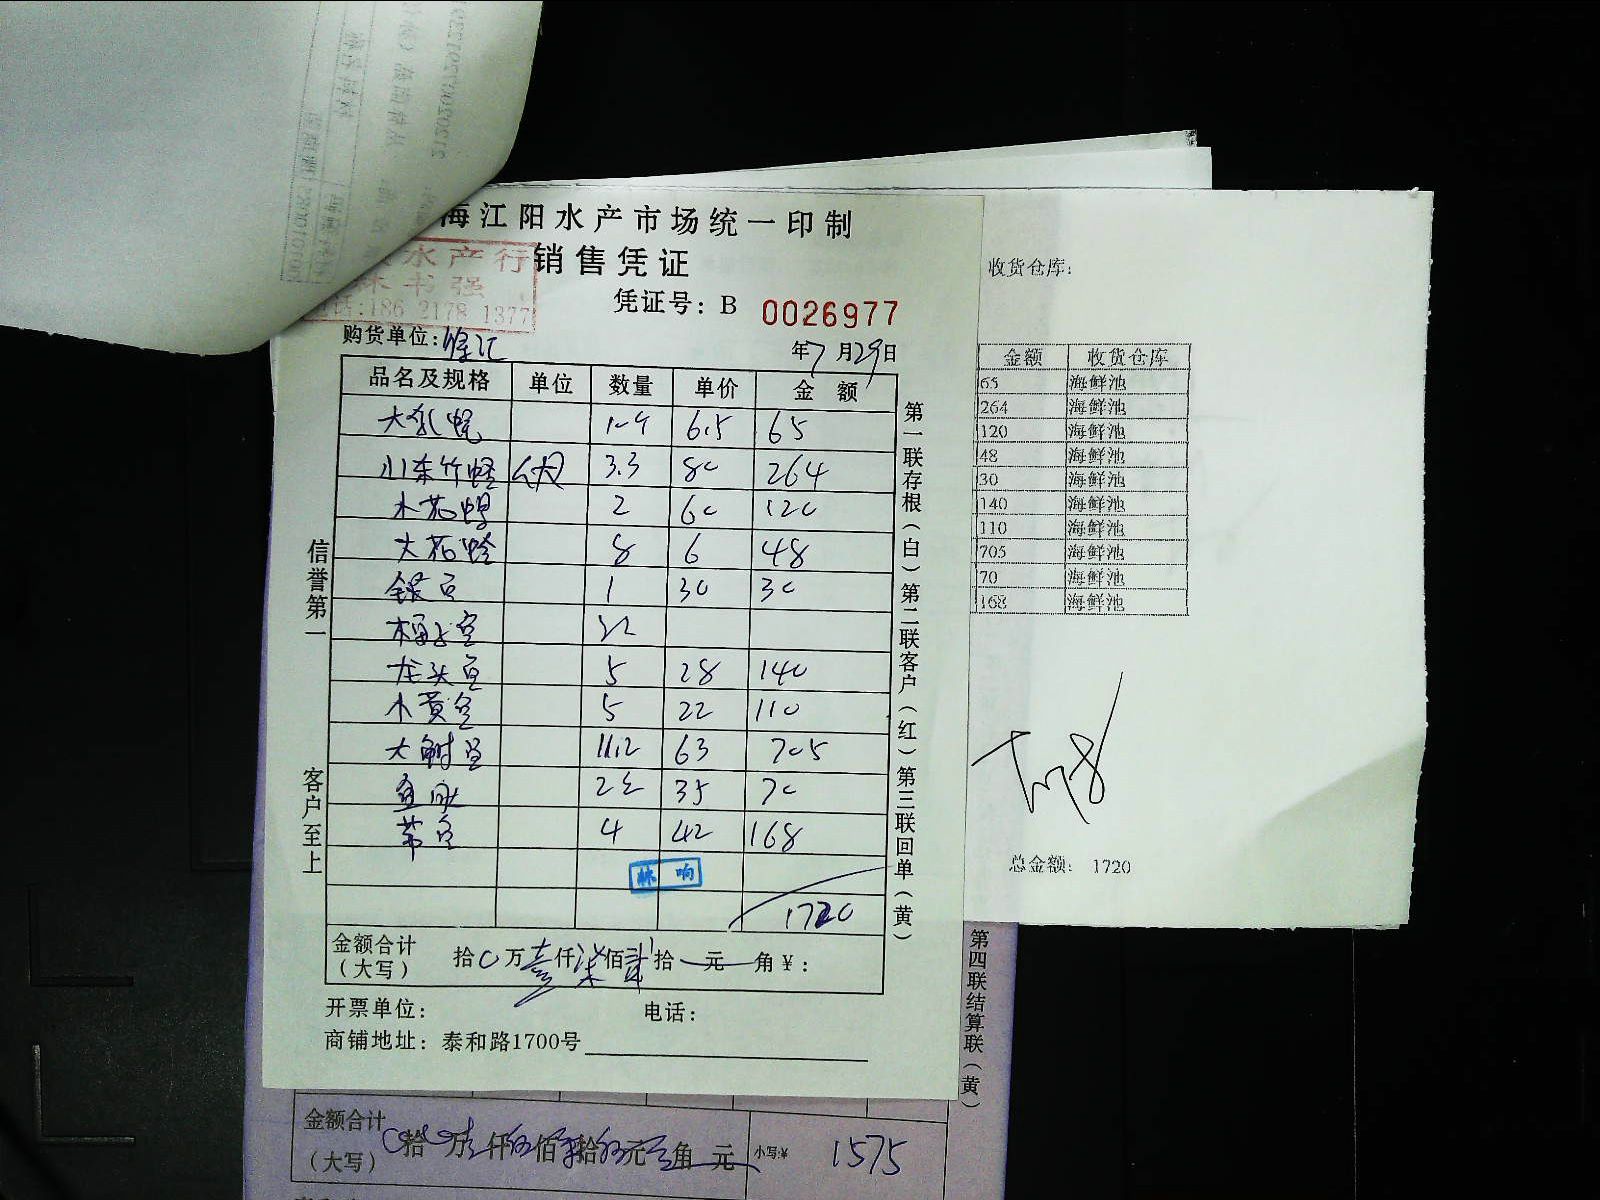 海江阳水产市场统一印制
销售凭证
水产行
书强
:186 2178 1377
凭证号：B 0026977
购货单位:徐汇
年7月29日
品名及规格 单位 数量 单价 金额
大 6.5 65
山东竹蛏 3.3 80 264
2 60 120
大花蛤 8 6 48
银鱼 1 30 30
龙头鱼 5 28 140
小黄鱼 5 22 110
大鲥鱼 11.2 63 705
35 70
带鱼 4 42 168
林响
1720
金额合计
（大写） 拾0万壹仟柒佰贰拾元角¥：
开票单位： 电话：
商铺地址：泰和路1700号
信誉第一
客户至上
第一联存根（白）第二联客户（红）第三联回单（黄）
收货仓库：
金额 收货仓库
65 海鲜池
264 海鲜池
120 海鲜池
48 海鲜池
30 海鲜池
140 海鲜池
110 海鲜池
705 海鲜池
70 海鲜池
168 海鲜池
总金额： 1720
第四联结算联（黄）
金额合计
（大写） 拾万仟佰拾元角
小写:¥ 1575